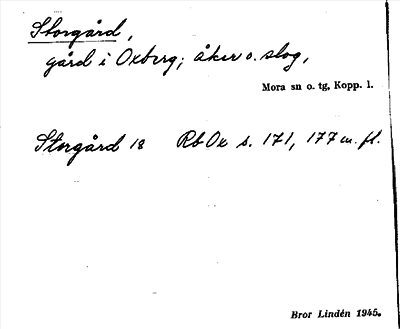 Storgård,
gård i Oxberg; åker o. slog,
Mora sn o. tg, Kopp. l.
Storgård 18 Rb Ox s. 171, 177 m. fl.
Bror Lindén 1945.